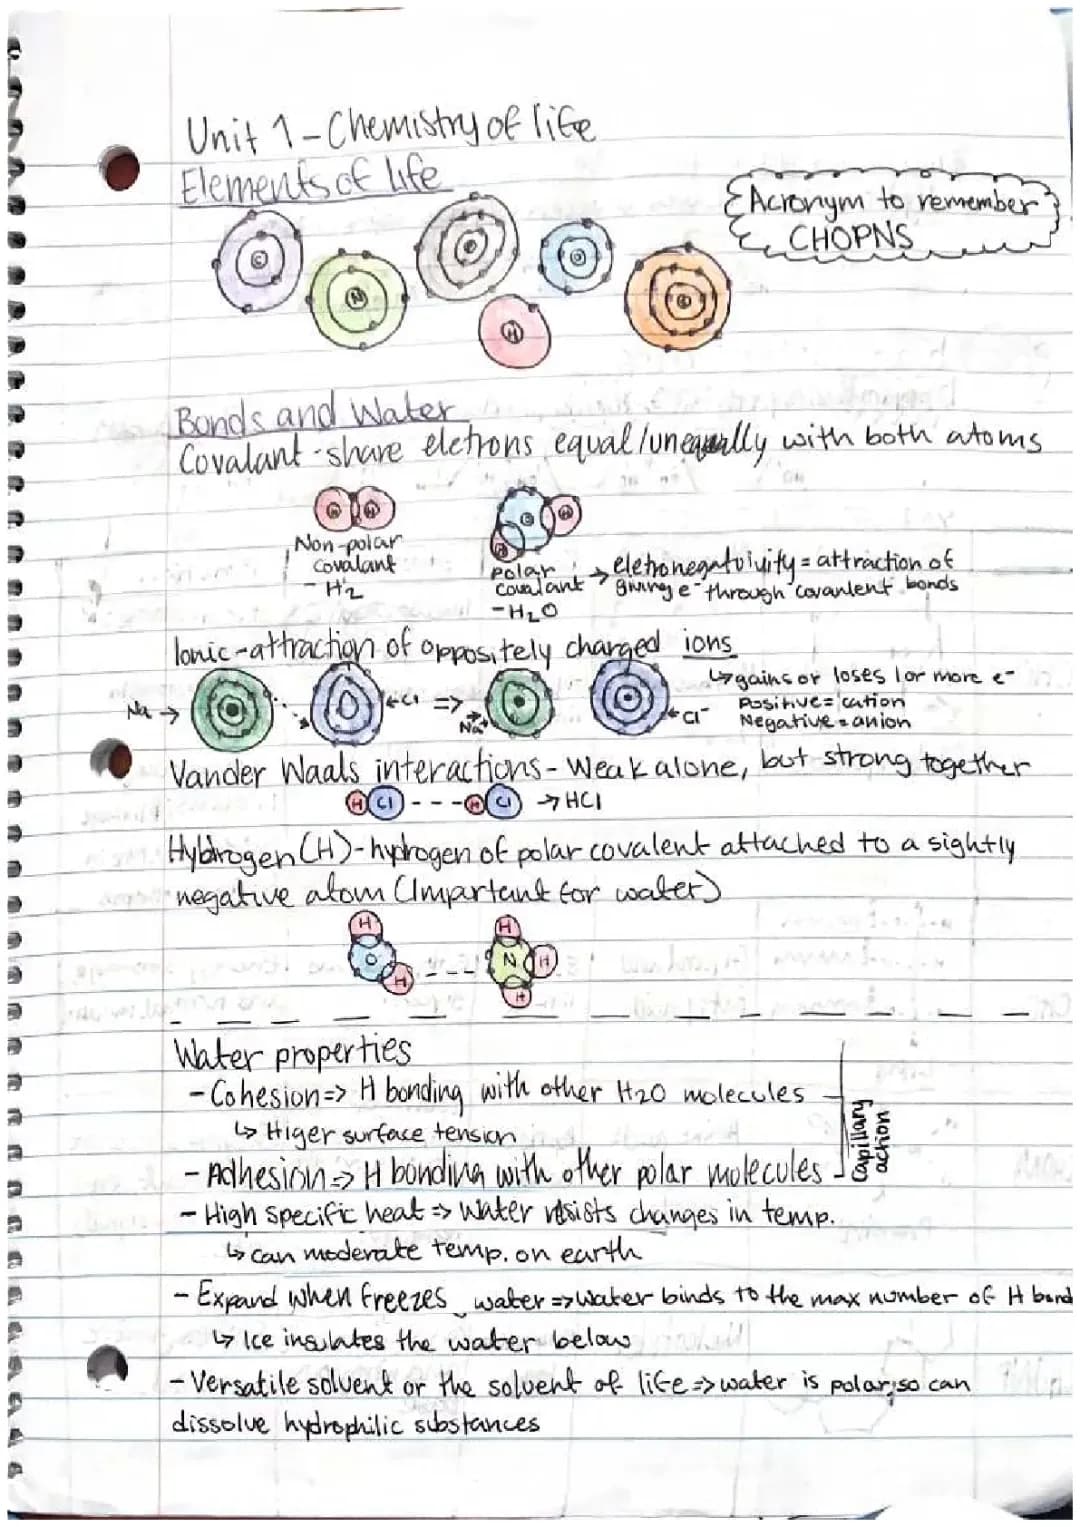 Unit 1 - Chemistry of life
Elements of Life
Acronym to remember
CHOPNS
C
N
P
O
S
H
Bonds and Water
Covalant - share eletrons equal/unequally with both atoms
H H
O H
H
Non-polar
covalant
- H2
Polar
covalant
- H2O
↳ eletronegativity = attraction of
e- through covanlent bonds
Ionic - attraction of oppositely charged ions
↳ gains or loses 1 or more e-
Positive = cation
Negative = anion
Na →
← Cl
=>
Na+
← Cl-
Vander Waals interactions - Weak alone, but strong together
H Cl - - - H Cl → HCl
Hydrogen (H) - hydrogen of polar covalent attached to a sightly
negative atom (Important for water)
H
O
H
H
N H
H
Water properties
- Cohesion => H bonding with other H2O molecules
↳ Higer surface tension
- Adhesion => H bonding with other polar molecules
Capillary
action
- High specific heat => Water resists changes in temp.
↳ can moderate temp. on earth
- Expand when freezes water => Water binds to the max number of H bond
↳ Ice insulates the water below
- Versatile solvent or the solvent of life => water is polar, so can
dissolve hydrophilic substances